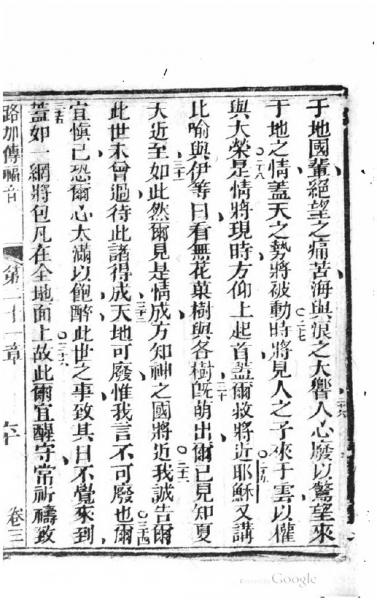 于地國輩絕望之痛苦海與浪之大響人心廢以驚望來
于地之情蓋天之勢將被動時將見人之子來于雲以權
與大榮是情將現時方仰上起首蓋爾救將近耶穌又講
此喻與伊等曰看無花菓樹與各樹旣萌出爾已見知夏
大近至如此然爾見是情成方知神之國將近我誠告爾
此世未曾過待此諸得成天地可廢惟我言不可廢也爾
宜慎己恐爾心太滿以飽醉此世之事致其日不覺來到
蓋如一網將包凡在全地面上故此爾宜醒守常祈禱致
路加傳福音 第二十一章 卷三
Google